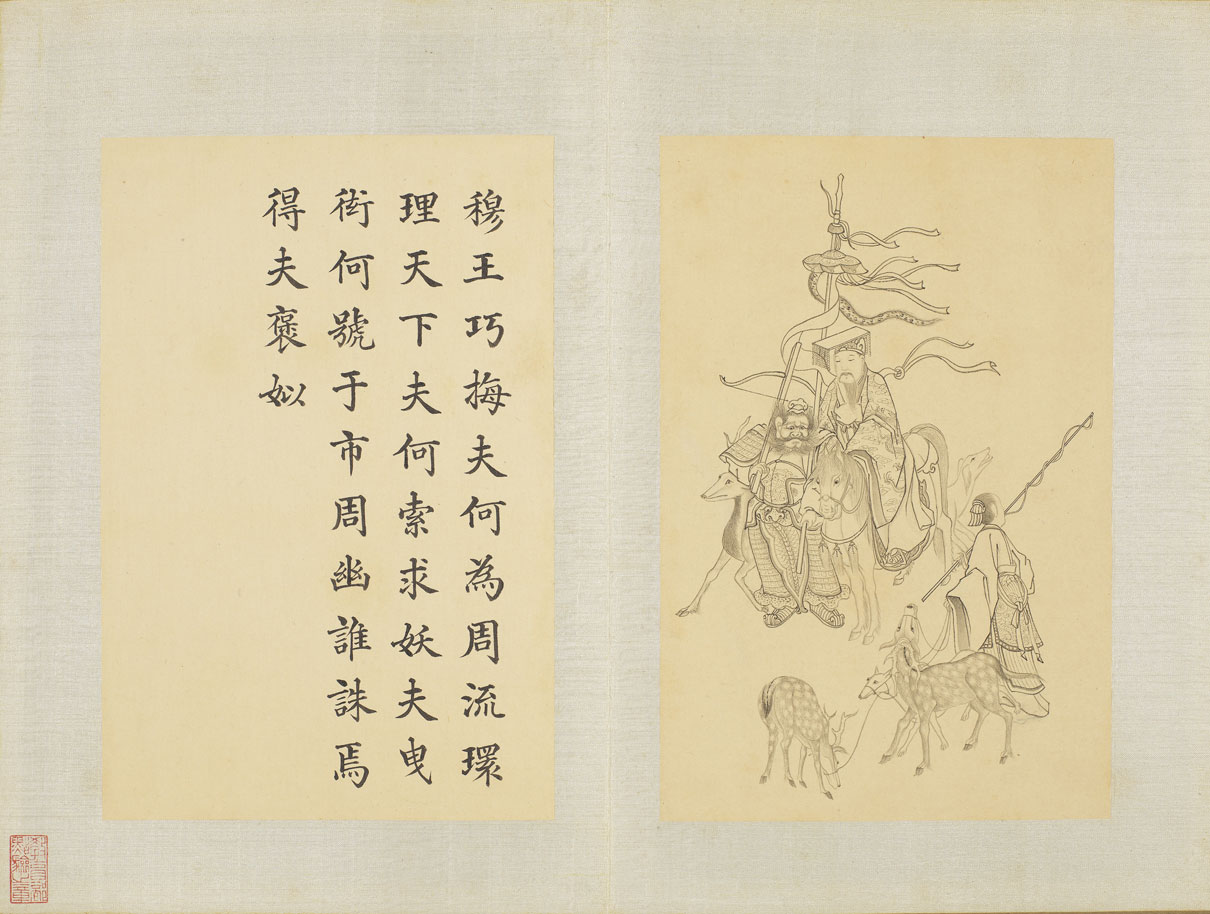 穆王巧梅夫何為周流環
理天下夫何索求妖夫曳
衒何號于市周幽誰誅焉
得夫褒姒
教育部
點驗之章